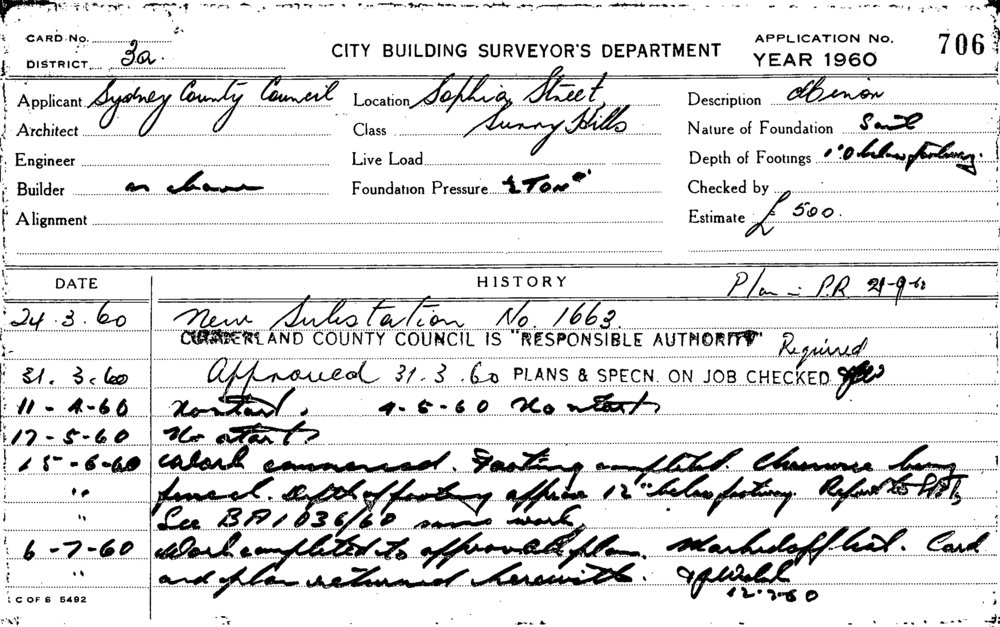 CARD No.
DISTRICT 3a.
CITY BUILDING SURVEYOR'S DEPARTMENT
APPLICATION No. 706
YEAR 1960
Applicant Sydney County Council
Location Sophia Street,
Surry Hills
Description
Architect
Class
Nature of Foundation Sand
Engineer
Live Load
Depth of Footings 1'0 below footway.
Builder as above
Foundation Pressure ½ Ton
Checked by
Alignment
Estimate £ 500.
DATE
HISTORY
Plan in P.R 21-9-60
24.3.60 New Substation No. 1663
CUMBERLAND COUNTY COUNCIL IS "RESPONSIBLE AUTHORITY" Required
31.3.60 Approved 31.3.60 PLANS & SPECN. ON JOB CHECKED
11-4-60 No start. 4-5-60 No start
17-5-60 No start
15-6-60 Work commenced. Footing completed. being
" Depth of footing approx 12" below footway.
" See BA 1036/60 same work
6-7-60 Work completed to approved plan. Marked off list. Card
" and plan returned herewith.
12-7-60
C OF S 5492